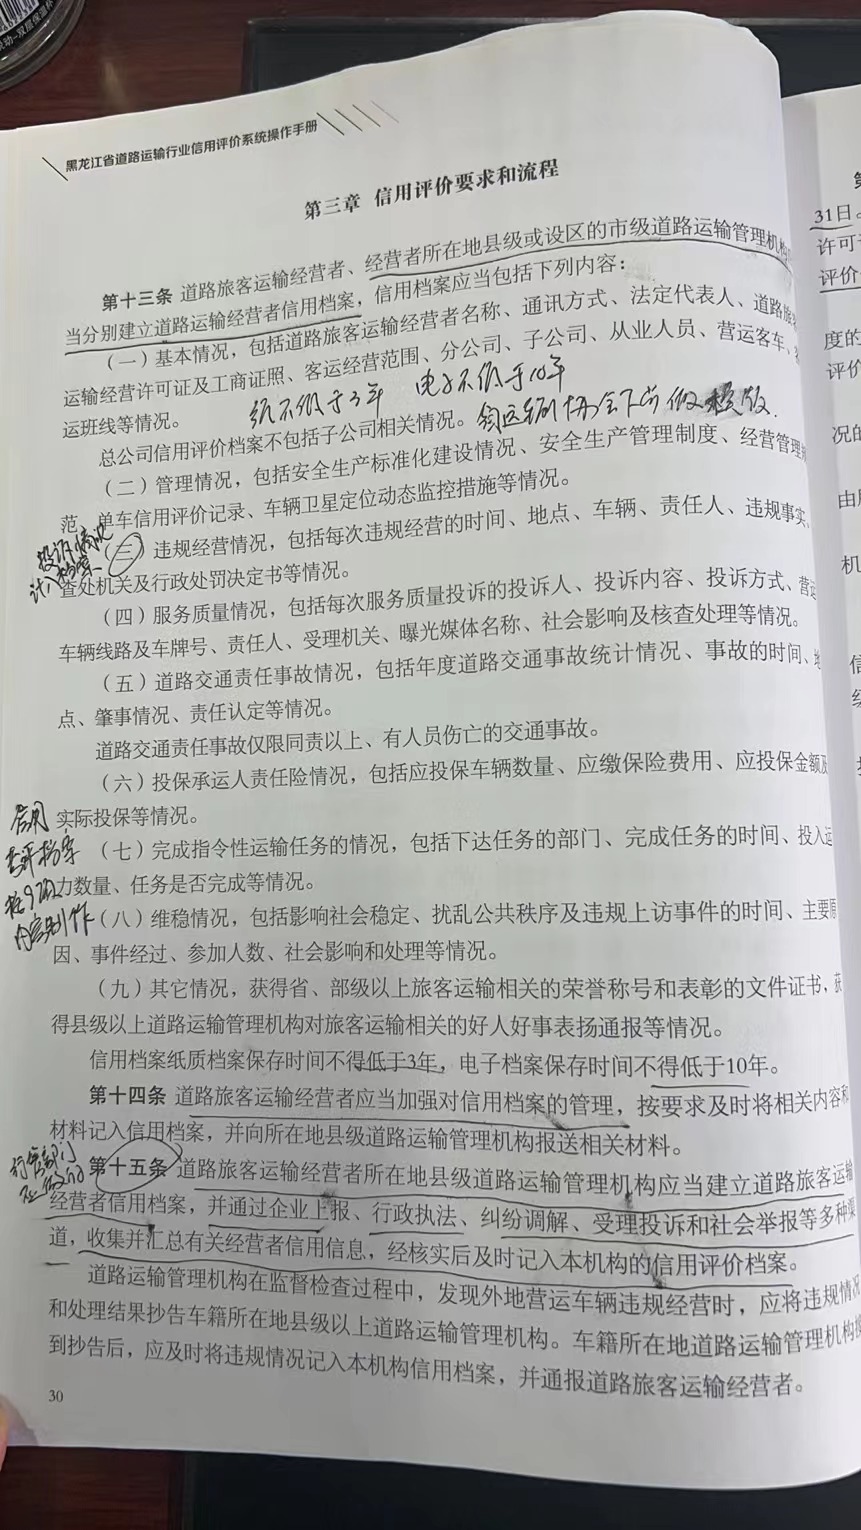 黑龙江省道路运输行业信用评价系统操作手册
第三章 信用评价要求和流程
第十三条 道路旅客运输经营者、经营者所在地县级或设区的市级道路运输管理机构
当分别建立道路运输经营者信用档案，信用档案应当包括下列内容：
（一）基本情况，包括道路旅客运输经营者名称、通讯方式、法定代表人、道路旅
运输经营许可证及工商证照、客运经营范围、分公司、子公司、从业人员、营运客车、
运班线等情况。
纸不低于3年 电子不低于10年
总公司信用评价档案不包括子公司相关情况。
（二）管理情况，包括安全生产标准化建设情况、安全生产管理制度、经营管理
范、单车信用评价记录、车辆卫星定位动态监控措施等情况。
投诉情况
（三）违规经营情况，包括每次违规经营的时间、地点、车辆、责任人、违规事实、
计入档案
查处机关及行政处罚决定书等情况。
（四）服务质量情况，包括每次服务质量投诉的投诉人、投诉内容、投诉方式、营运
车辆线路及车牌号、责任人、受理机关、曝光媒体名称、社会影响及核查处理等情况。
（五）道路交通责任事故情况，包括年度道路交通事故统计情况、事故的时间、地
点、肇事情况、责任认定等情况。
道路交通责任事故仅限同责以上、有人员伤亡的交通事故。
（六）投保承运人责任险情况，包括应投保车辆数量、应缴保险费用、应投保金额及
信用
实际投保等情况。
考评档案
（七）完成指令性运输任务的情况，包括下达任务的部门、完成任务的时间、投入运
力数量、任务是否完成等情况。
内容制作
（八）维稳情况，包括影响社会稳定、扰乱公共秩序及违规上访事件的时间、主要原
因、事件经过、参加人数、社会影响和处理等情况。
（九）其它情况，获得省、部级以上旅客运输相关的荣誉称号和表彰的文件证书，获
得县级以上道路运输管理机构对旅客运输相关的好人好事表扬通报等情况。
信用档案纸质档案保存时间不得低于3年，电子档案保存时间不得低于10年。
第十四条 道路旅客运输经营者应当加强对信用档案的管理，按要求及时将相关内容和
材料记入信用档案，并向所在地县级道路运输管理机构报送相关材料。
第十五条 道路旅客运输经营者所在地县级道路运输管理机构应当建立道路旅客运输
经营者信用档案，并通过企业上报、行政执法、纠纷调解、受理投诉和社会举报等多种渠
道，收集并汇总有关经营者信用信息，经核实后及时记入本机构的信用评价档案。
道路运输管理机构在监督检查过程中，发现外地营运车辆违规经营时，应将违规情况
和处理结果抄告车籍所在地县级以上道路运输管理机构。车籍所在地道路运输管理机构接
到抄告后，应及时将违规情况记入本机构信用档案，并通报道路旅客运输经营者。
30
31日。
许可
评价
度的
评价
况的
由
机
信